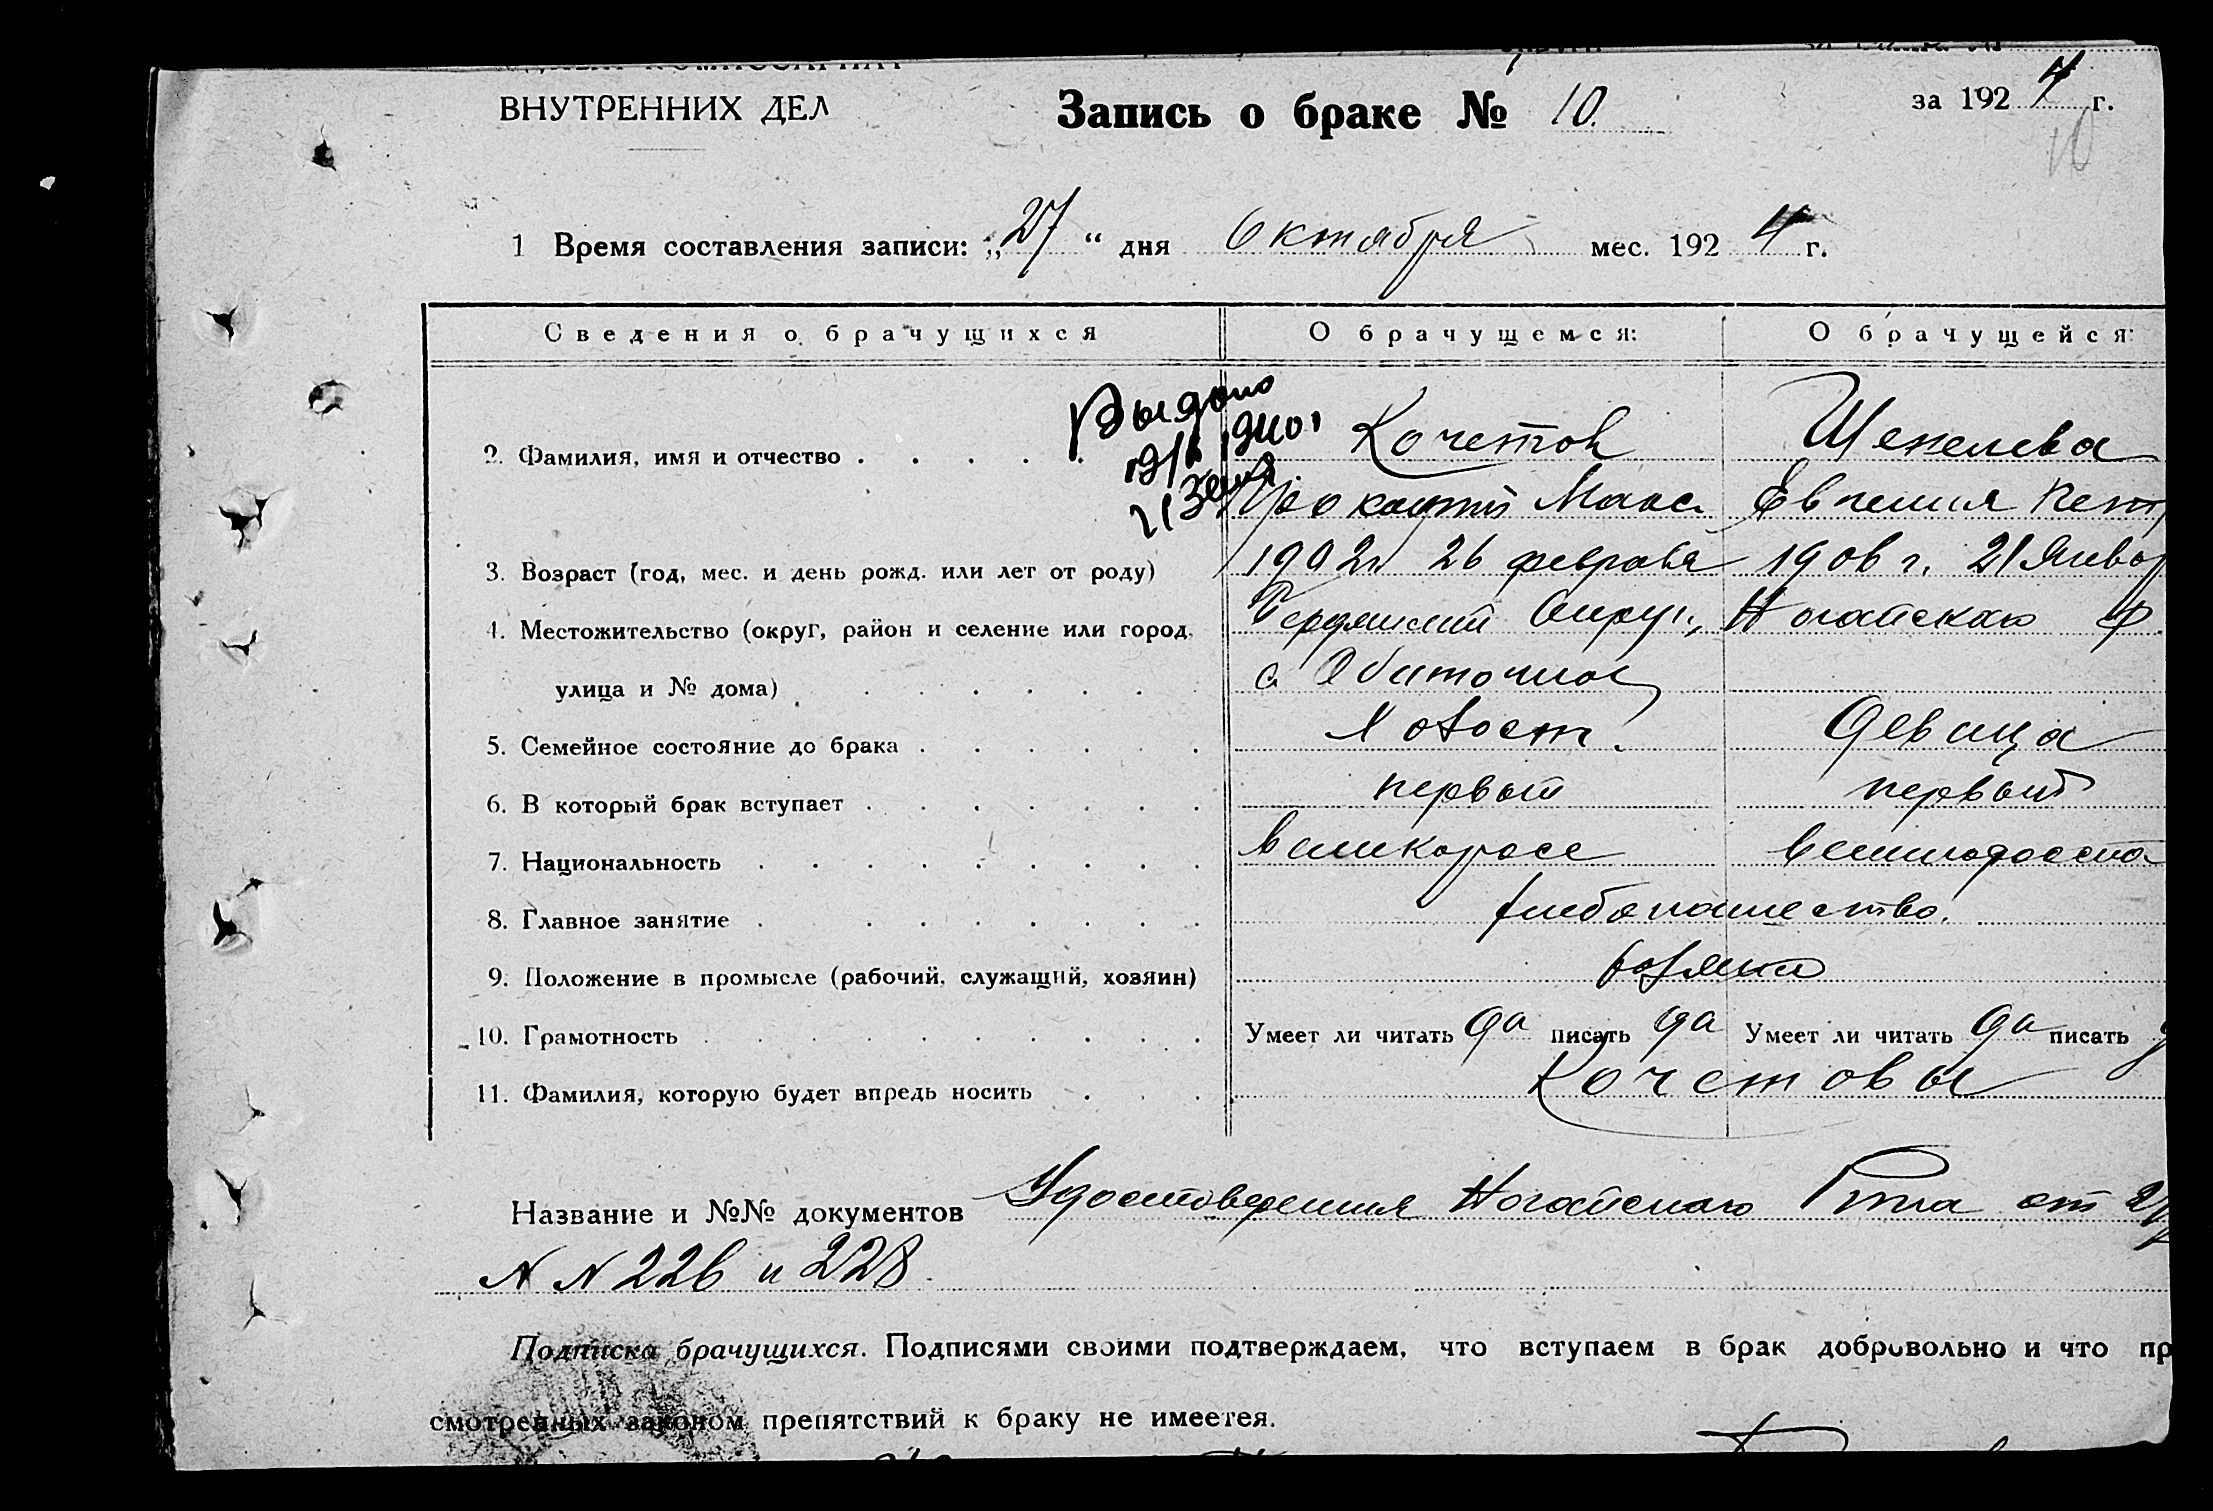 ВНУТРЕННИХ ДЕЛ
Запись о браке № 10.
за 1924 г.
10
1 Время составления записи: „27“ дня Октября мес. 1924 г.
Сведения о брачущихся О брачущемся: О брачущейся:
Выдано
1940
2. Фамилия, имя и отчество Кочетов Шепелева
Макс. Евгения
3. Возраст (год, мес. и день рожд. или лет от роду) 1902г 26 февраля 1906 г. 21 Январ
4. Местожительство (округ, район и селение или город, Бердянский Округ, Ногайскаю р
улица и № дома) с Обиточное
5. Семейное состояние до брака холост. девица
6. В который брак вступает первый первый
7. Национальность великоросс великоросска
8. Главное занятие хлебопашество.
9. Положение в промысле (рабочий, служащий, хозяин) хозяин
10. Грамотность Умеет ли читать да писать да Умеет ли читать да писать
11. Фамилия, которую будет впредь носить Кочетовы
Название и №№ документов Удостоверения Ногайскаго от
NN 226 и 228.
Подписка брачущихся. Подписями своими подтверждаем, что вступаем в брак добровольно и что пр
смотренных законом препятствий к браку не имеется.